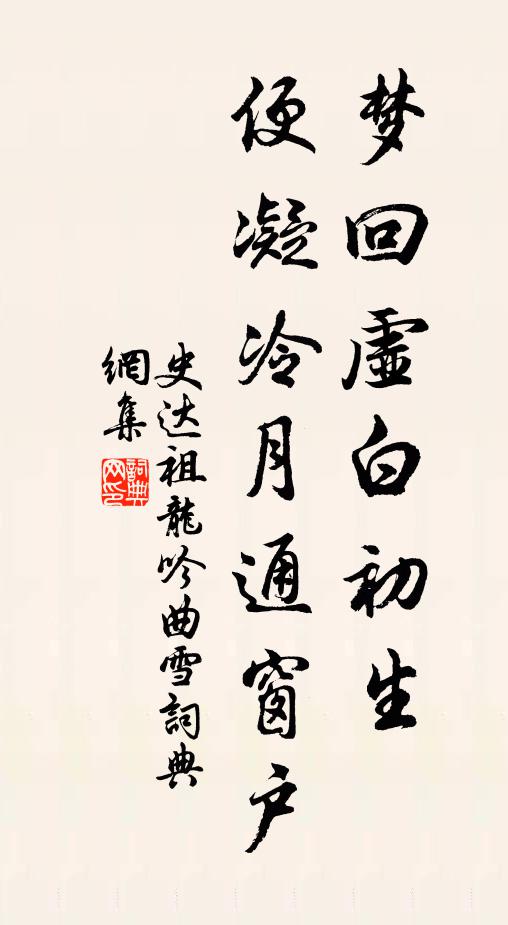 梦回虚白初生
便凝冷月通窗户
史达祖龍吟曲雪詞典
網集
詞典网印